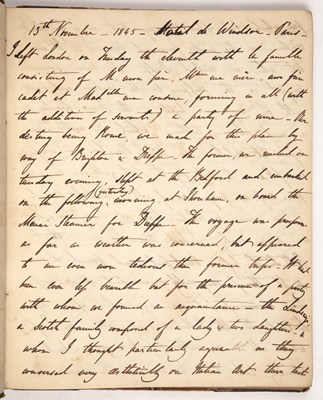 13th November - 1845 - Hotel de Windsor - Paris -
I left London on Tuesday the eleventh with la famille
consisting of M. mon père, Mme ma mère, mon frère
cadet et Madlle ma cousine, forming in all (with
the addition of servants) a party of nine - Our
destiny being Rome, we made for this place by
way of Brighton & Dieppe. The former, we reached on
tuesday evening, slept at the Bedford and embarked
on the following (yesterday) morning at Shoreham, on board the
Menai Steamer for Dieppe. The voyage was prosperous
as far as weather was concerned, but appeared
to me even more tedious than former trips. It had
been even less bearable but for the presence of a party
with whom we formed an acquaintance - the Lindsays
a Scotch family composed of a lady & two daughters,
whom I thought particularly agreeable as they
conversed very artistically on Italian Art their last